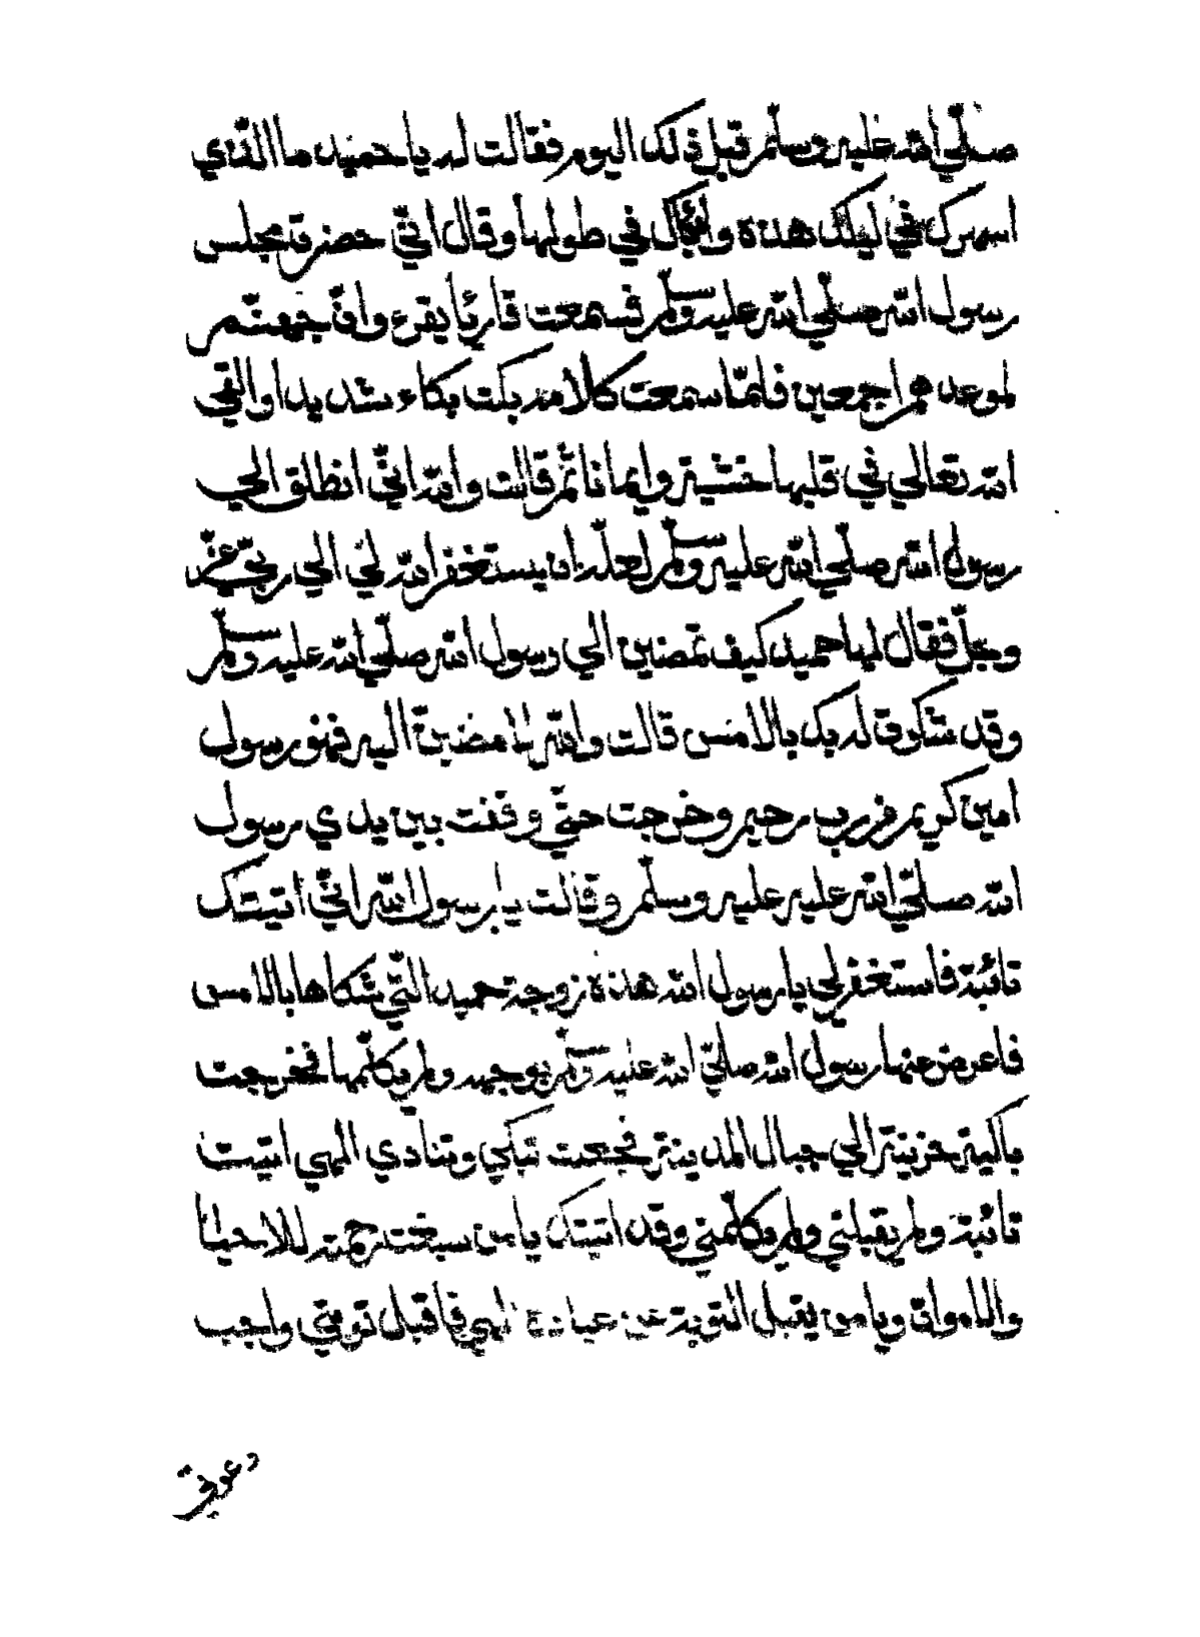 صلّي الله عليه وسلّم قبل ذلك اليوم فقالت له يا حميد ما الّذي
اسهرك في ليلتك هذه وابكاك في طولها وقال انّي حضرة مجلس
رسول الله صلّي الله عليه وسلّم فسمعت قارئا يقرء وانّ جهنّم
لموعدهم اجمعين فلمّا سمعت كلامه بكت بكاء شديدا والقي
الله تعالي في قلبها خشية وايمانا ثم قالت والله انّي انطلق الي
رسول الله صلّي الله عليه وسلّم لعلّه ان يستغفر الله لي الي ربّي عزّ
وجلّ فقال لها حميد كيف تمضين الي رسول الله صلّي الله عليه وسلّم
وقد شكوت له بك بالامس قالت والله لامضينّ اليه فهو رسول
امين كريم ورب رحيم وخرجت حتّي وقفت بين يدي رسول
الله صلّي الله عليه عليه وسلّم وقالت يا رسول الله انّي اتيتك
تائبة فاستغفر لي يا رسول الله هذه زوجة حميد الّتي شكاها بالامس
فاعرض عنها رسول الله صلّي الله عليه وسلّم بوجهه ولم يكلّمها فخرجت
باكية حزينة الي جبال المدينة فجعت تبكي وتنادي الهي اتيت
تائبة ولم يقبلني ولم يكلّمني وقد اتيتك يا من سبقت رحمته للاحيا
والاموات ويا من يقبل التوبة عن عباده الهي فاقبل توبتي واجب
دعوتي